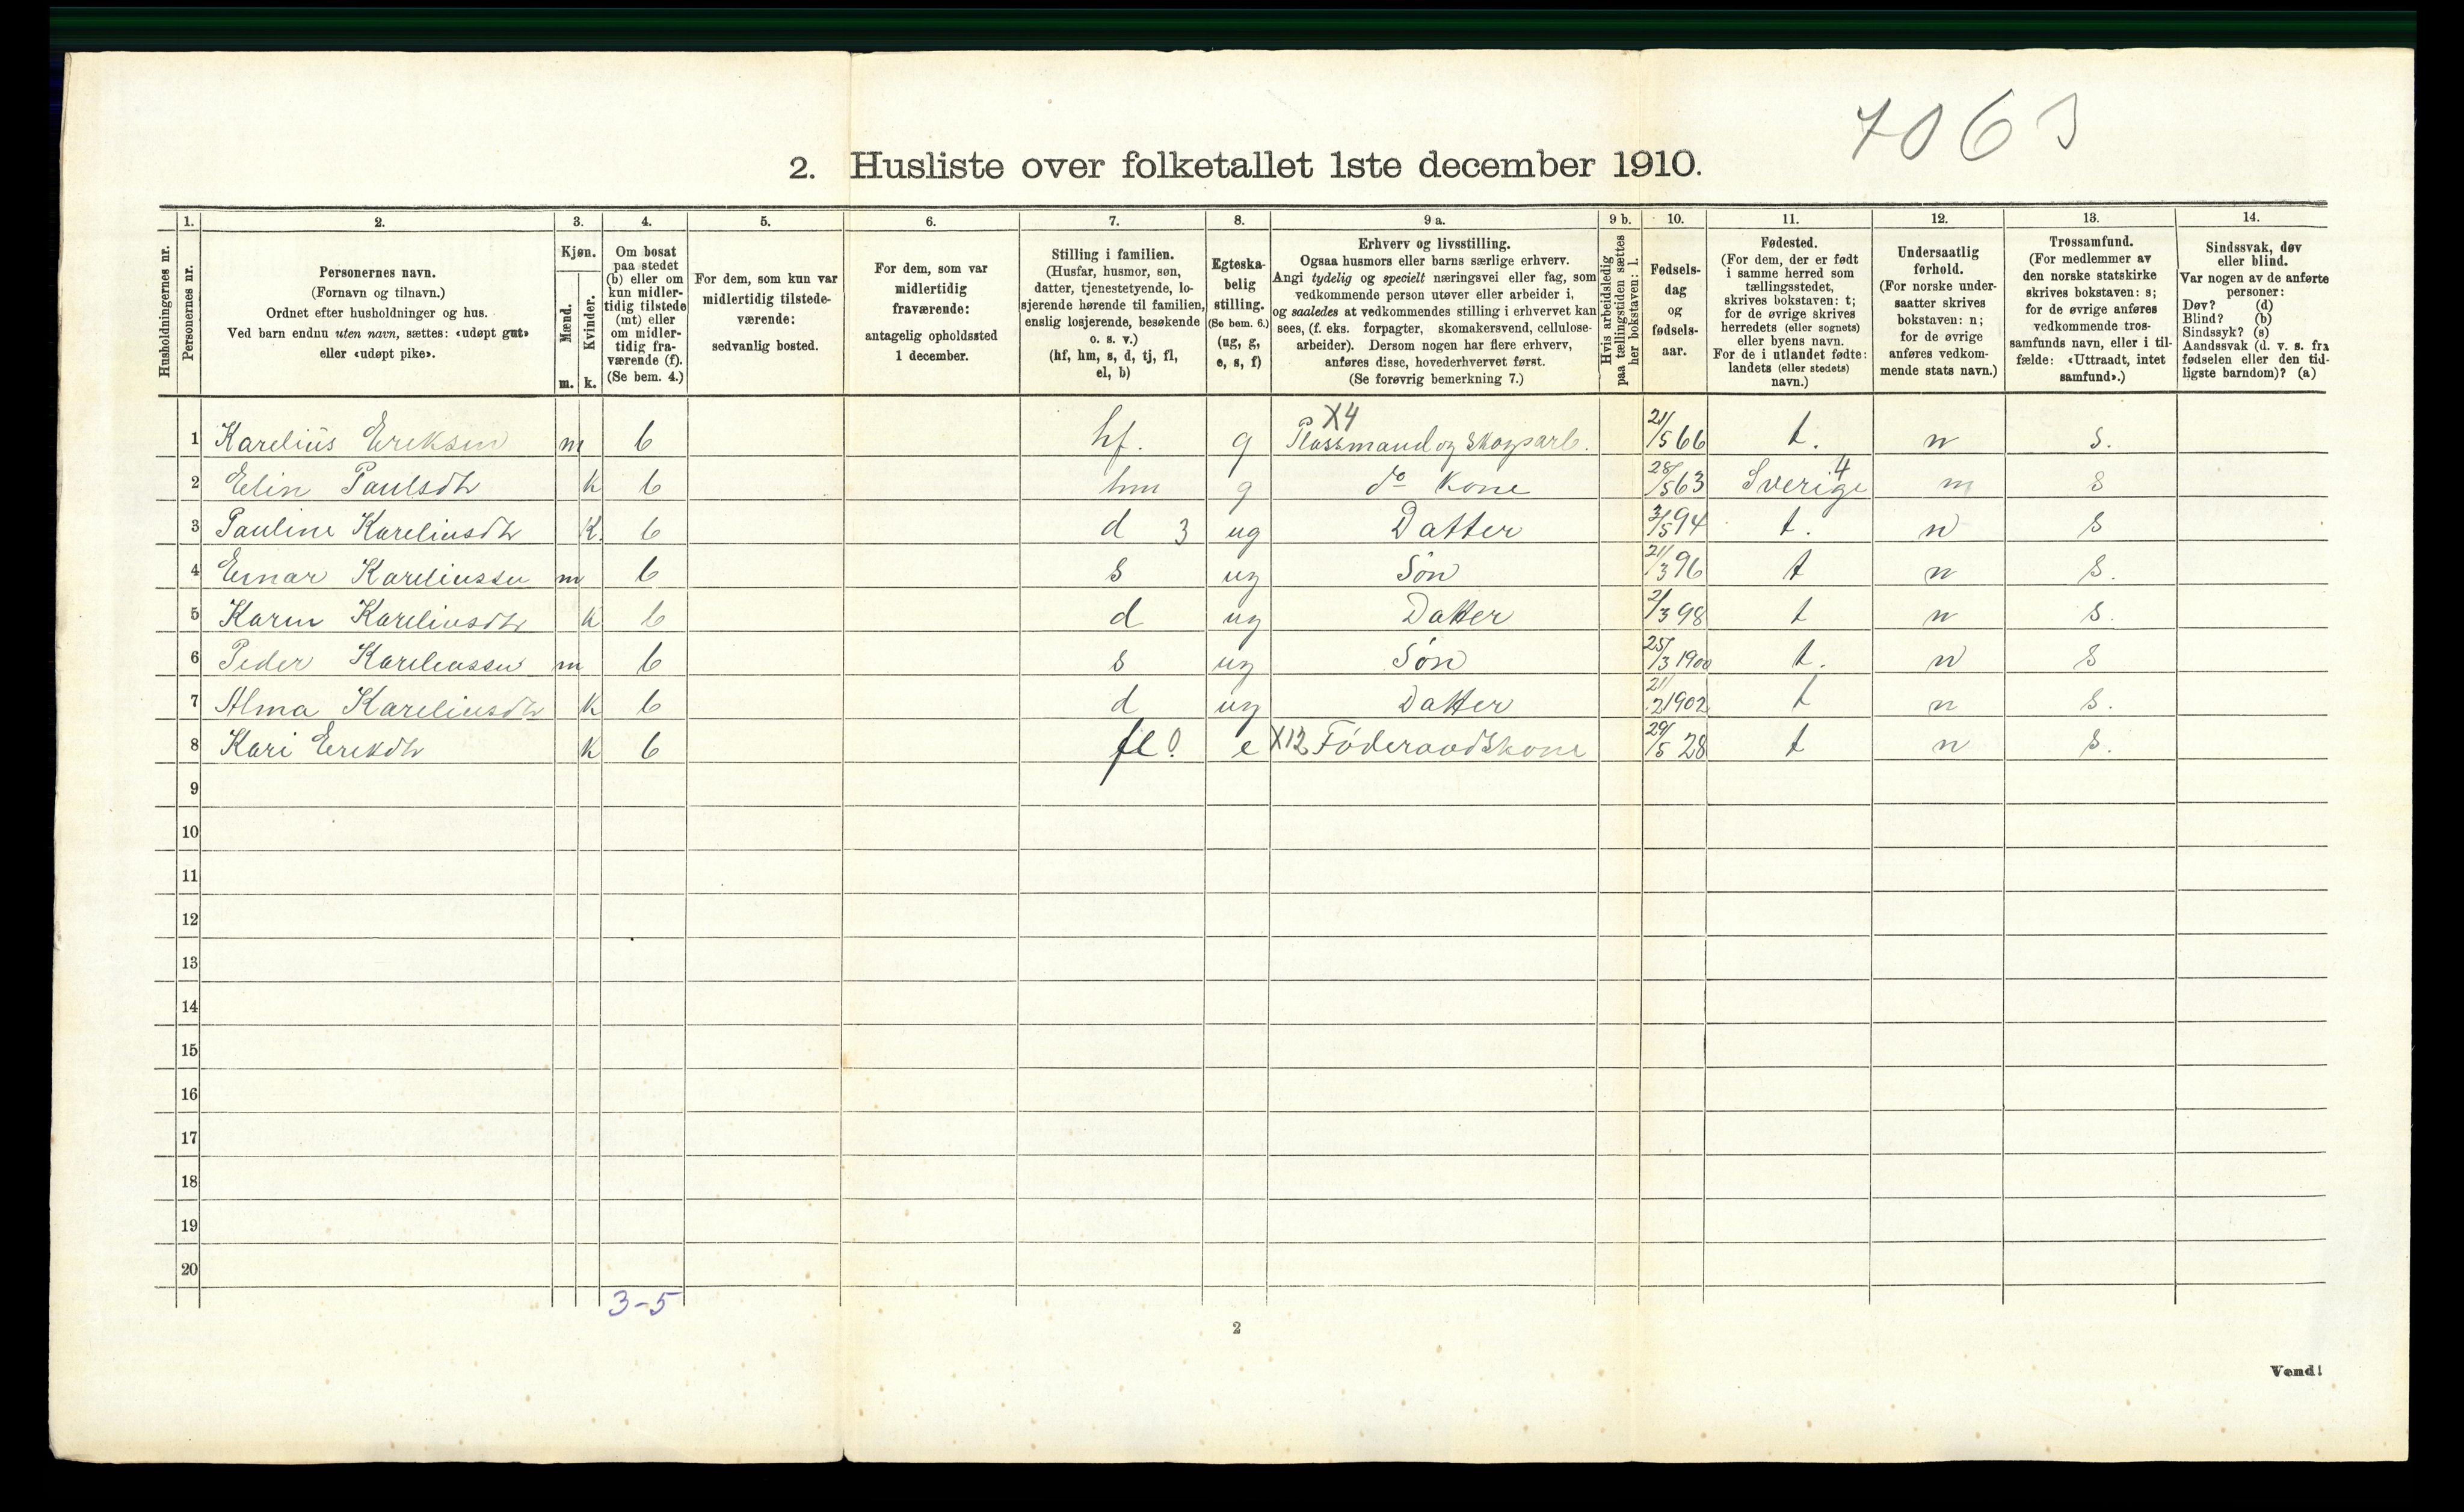 7063
2. Husliste over folketallet 1ste december 1910.
1. 2. 3. 4. 5. 6. 7. 8. 9 a. 9 b. 10. 11. 12. 13. 14.
Husholdningernes nr.
Personernes nr.
Personernes navn.
(Fornavn og tilnavn.)
Ordnet efter husholdninger og hus.
Ved barn endnu uten navn, sættes: «udøpt gut»
eller «udøpt pike».
Kjøn.
Mænd.
Kvinder.
m. k.
Om bosat
paa stedet
(b) eller om
kun midler-
tidig tilstede
(mt) eller
om midler-
tidig fra-
værende (f).
(Se bem. 4.)
For dem, som kun var
midlertidig tilstede-
værende:
sedvanlig bosted.
For dem, som var
midlertidig
fraværende:
antagelig opholdssted
1 december.
Stilling i familien.
(Husfar, husmor, søn,
datter, tjenestetyende, lo-
sjerende hørende til familien,
enslig losjerende, besøkende
o. s. v.)
(hf, hm, s, d, tj, fl,
el, b)
Egteska-
belig
stilling.
(Se bem. 6.)
(ug, g,
e, s, f)
Erhverv og livsstilling.
Ogsaa husmors eller barns særlige erhverv.
Angi tydelig og specielt næringsvei eller fag, som
vedkommende person utøver eller arbeider i,
og saaledes at vedkommendes stilling i erhvervet kan
sees, (f. eks. forpagter, skomakersvend, cellulose-
arbeider). Dersom nogen har flere erhverv,
anføres disse, hovederhvervet først.
(Se forøvrig bemerkning 7.)
Hvis arbeidsledig
paa tællingstiden sættes
her bokstaven: l.
Fødsels-
dag
og
fødsels-
aar.
Fødested.
(For dem, der er født
i samme herred som
tællingsstedet,
skrives bokstaven: t;
for de øvrige skrives
herredets (eller sognets)
eller byens navn.
For de i utlandet fødte:
landets (eller stedets)
navn.)
Undersaatlig
forhold.
(For norske under-
saatter skrives
bokstaven: n;
for de øvrige
anføres vedkom-
mende stats navn.)
Trossamfund.
(For medlemmer av
den norske statskirke
skrives bokstaven: s;
for de øvrige anføres
vedkommende tros-
samfunds navn, eller i til-
fælde: «Uttraadt, intet
samfund».)
Sindssvak, døv
eller blind.
Var nogen av de anførte
personer:
Døv? (d)
Blind? (b)
Sindssyk? (s)
Aandssvak (d. v. s. fra
fødselen eller den tid-
ligste barndom)? (a)
X4
1 Karelius Eriksen m b hf. g Plassmand og Skogsarb. 21/5 66 t. n s.
2 Elin Paulsdtr k b hm g do Kone 28/5 63 Sverige 4 n s
3 Pauline Kareliusdtr k. b d 3 ug Datter 3/5 94 t. n s
4 Einar Kareliussen m b s ug Søn 21/3 96 t n s.
5 Karen Kareliusdtr k b d ug Datter 2/3 98 t n s.
6 Peder Kareliussen m b s ug Søn 25/3 1900 t. n s
7 Alma Kareliusdtr k b d ug Datter 21/2 1902 t n s.
8 Kari Eriksdtr k b fl 0 e X12 Föderaadskone 29/5 28 t n s.
9
10
11
12
13
14
15
16
17
18
19
20
3-5
2
Vend!